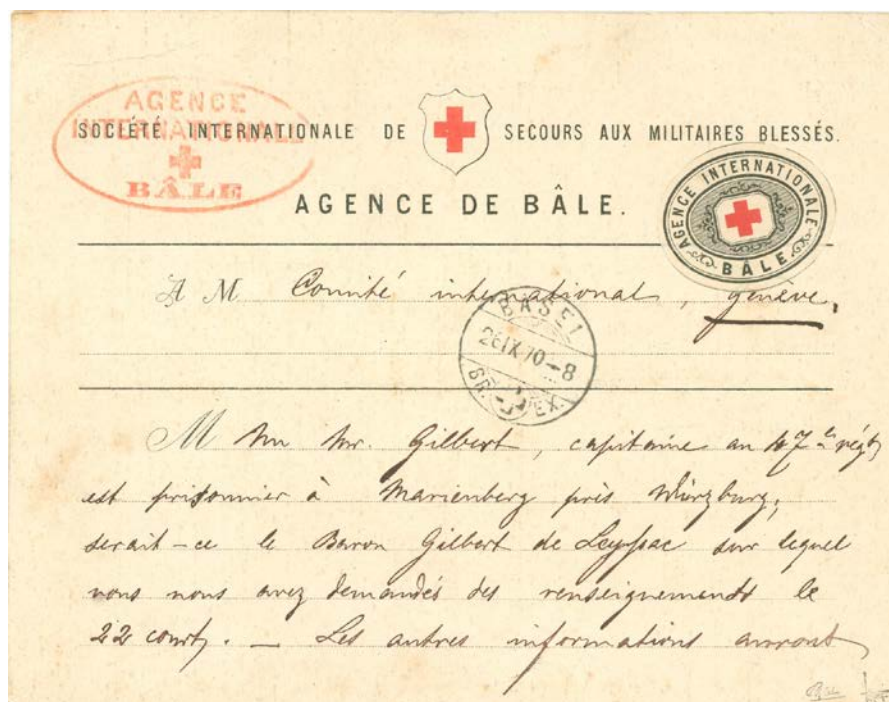 AGENCE
INTERNATIONALE
BÂLE
SOCIÉTÉ INTERNATIONALE DE SECOURS AUX MILITAIRES BLESSÉS.
AGENCE DE BÂLE.
AGENCE INTERNATIONALE
BÂLE
A M. Comité international, genève.
BASEL
26 IX 70-8
BR. EX.
M Un Mr. Gilbert, capitaine au 47e régt
est prisonnier à Marienberg près Würzburg;
serait-ce le Baron Gilbert de Leyssac sur lequel
vous nous avez demandés des renseignements le
22 court. — Les autres informations auront